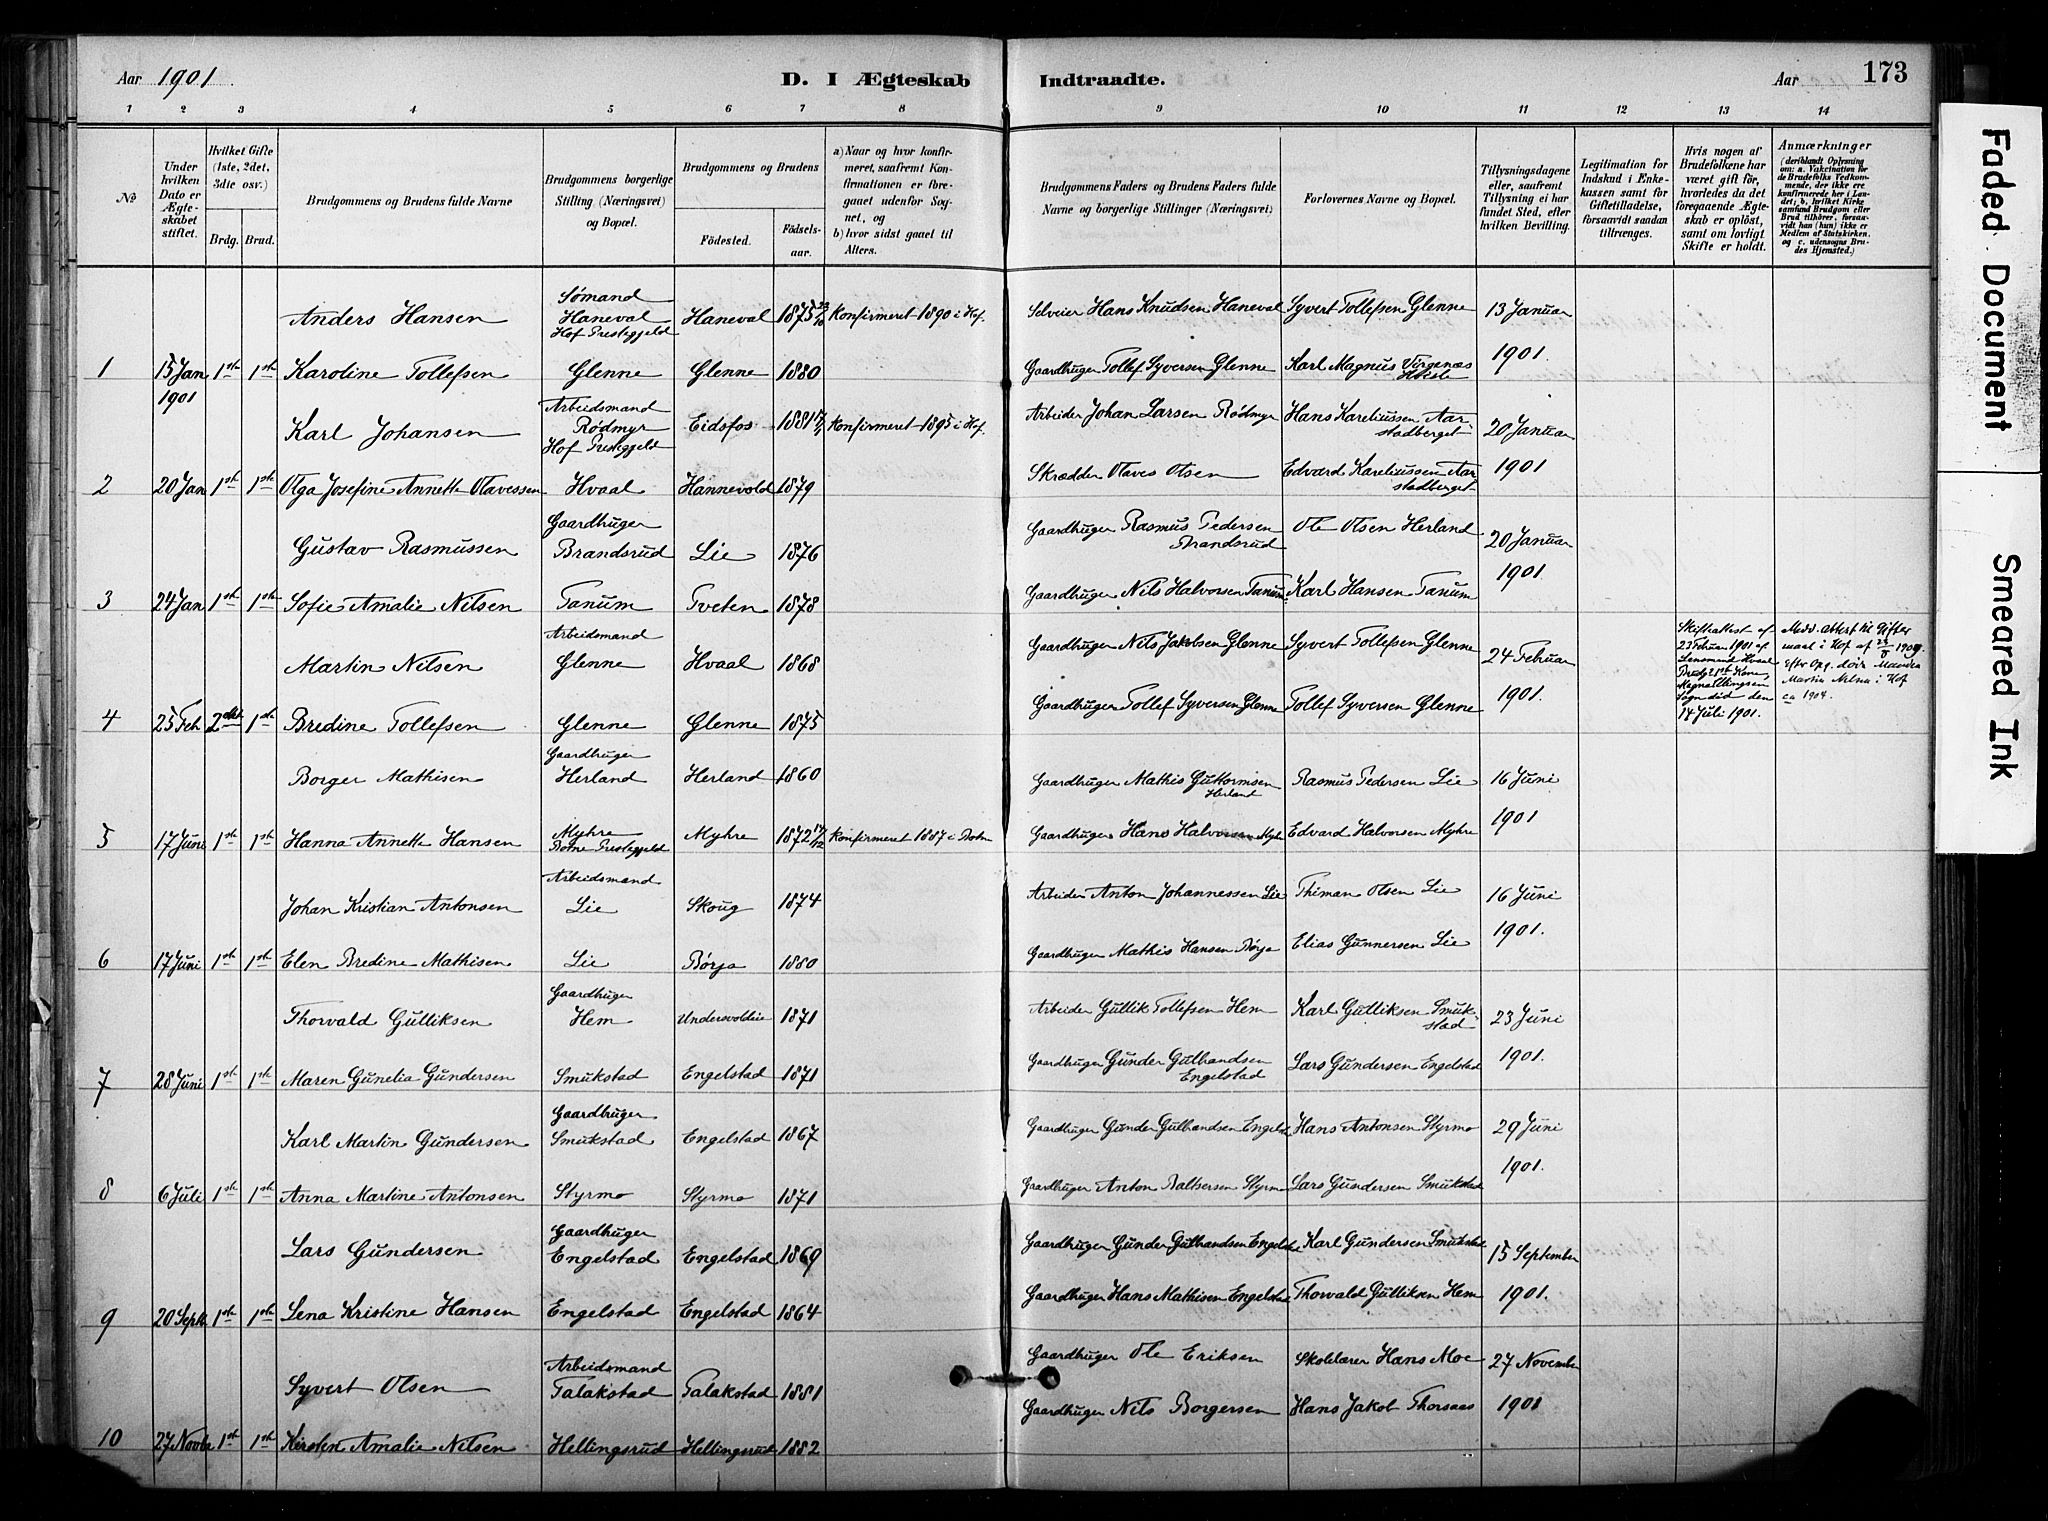 Aar 1901 D. I Ægteskab Indtraadte. Aar 173
1 2 3 4 5 6 7 8 9 10 11 12 13 14
No
Under hvilken Dato er Ægteskabet stiftet.
Hvilket Gifte (1ste, 2det, 3die osv.)
Brdg. Brud.
Brudgommens og Brudens fulde Navne
Brudgommens borgerlige Stilling (Næringsvei) og Bopæl.
Brudgommens og Brudens
Födested. Födselsaar.
a) Naar og hvor konfirmeret, saafremt Konfirmationen er foregaaet udenfor Sognet, og
b) hvor sidst gaaet til Alters.
Brudgommens Faders og Brudens Faders fulde Navne og borgerlige Stillinger (Næringsvei)
Forlovernes Navne og Bopæl.
Tillysningsdagene eller, saafremt Tillysning ei har fundet Sted, efter hvilken Bevilling.
Legitimation for Indskud i Enkekassen samt for Giftetilladelse, forsaavidt saadan tiltrænges.
Hvis nogen af Brudefolkene har været gift før, hvorledes da det foregaaende Ægteskab er oplöst, samt om lovligt Skifte er holdt.
Anmærkninger (deriblandt Oplysning om: a. Vakcination for de Brudefolks Vedkommende, der ikke ere konfirmerede her i Landet; b. hvilket Kirkesamfund Brudgom eller Brud tilhörer, forsaavidt han (hun) ikke er Medlem af Statskirken, og c. udensogns Brudes Hjemsted.)
Anders Hansen Sømand Haneval Hof Prestegjeld Haneval 1875 23/10 Konfirmeret 1890 i Hof. Selveier Hans Knudsen Haneval Syvert Tollefsen Glenne 13 Januar
1 15 Jan 1901 1ste 1ste Karoline Tollefsen Glenne Glenne 1880 Gaardbruger Tollef Syversen Glenne Karl Magnus Virgenæs 1901.
Karl Johansen Arbeidsmand Rødmyr Hof Prestegjeld Eidsfos 1881 Konfirmeret 1895 i Hof. Arbeider Johan Larsen Rødmyr Hans Kareliussen Aarstadberget 20 Januar
2 20 Jan 1ste 1ste Olga Josefine Annette Olavessen Hvaal Hannevold 1879 Skrædder Olaves Olsen Edvard Kareliussen Aarstadberget 1901
Gustav Rasmussen Gaardbruger Brandsrud Lie 1876 Gaardbruger Rasmus Pedersen Brandsrud Ole Olsen Herland 20 Januar
3 24 Jan 1ste 1ste Sofie Amalie Nilsen Tanum Tveten 1878 Gaardbruger Nils Halvorsen Tanum Karl Hansen Tanum 1901.
Martin Nilsen Arbeidsmand Glenne Hvaal 1868 Gaardbruger Nils Jakobsen Glenne Syvert Tollefsen Glenne 24 Februar
Skifteattest af 23 Februar 1901 af Lensmand Hvaal
død den 14 Juli 1901.
Medd. attest til Giftermaal i Hof af
Martin Nilsen i Hof ca 1904.
4 25 Feb 2det 1ste Bredine Tollefsen Glenne Glenne 1875 Gaardbruger Tollef Syversen Glenne Tollef Syversen Glenne 1901.
Borger Mathisen Gaardbruger Herland Herland 1860 Gaardbruger Mathis Guttormsen Herland Rasmus Pedersen Lie 16 Juni
5 17 Juni 1ste 1ste Hanna Annette Hansen Myhre Botne Prestegjeld Myhre 1872 17/12 Konfirmeret 1887 i Botne Gaardbruger Hans Halvorsen Myhre Edvard Halvorsen Myhre 1901
Johan Kristian Antonsen Arbeidsmand Lie Skoug 1874 Arbeider Anton Johannessen Lie Thiman Olsen Lie 16 Juni
6 17 Juni 1ste 1ste Elen Bredine Mathisen Lie Børja 1880 Gaardbruger Mathis Hansen Børja Elias Gunnersen Lie 1901.
Thorvald Gulliksen Gaardbruger Hem Undersvoldeie 1871 Arbeider Gullik Tollefsen Hem Karl Gulliksen Smukstad 23 Juni
7 28 Juni 1ste 1ste Maren Gunelia Gundersen Smukstad Engelstad 1871 Gaardbruger Gunder Gulbandsen Engelstad Lars Gundersen Engelstad 1901.
Karl Martin Gundersen Gaardbruger Smukstad Engelstad 1867 Gaardbruger Gunder Gulbandsen Engelstad Hans Antonsen Styrmo 29 Juni
8 6 Juli 1ste 1ste Anna Martine Antonsen Styrmo Styrmo 1871 Gaardbruger Anton Baltsersen Styrmo Lars Gundersen Smukstad 1901.
Lars Gundersen Gaardbruger Engelstad Engelstad 1869 Gaardbruger Gunder Gulbandsen Engelstad Karl Gundersen Smukstad 15 September
9 20 Septb 1ste 1ste Lena Kristine Hansen Engelstad Engelstad 1864 Gaardbruger Hans Mathisen Engelstad Thorvald Gulliksen Hem 1901.
Syvert Olsen Arbeidsmand Talakstad Talakstad 1881 Gaardbruger Ole Eriksen Skolelærer Hans Moe 27 November
10 27 Novbr 1ste 1ste Kirsten Amalie Nilsen Hellingsrud Hellingsrud 1882 Gaardbruger Nils Borgersen Hans Jakob Thorsaas 1901
Faded Document
Smeared Ink